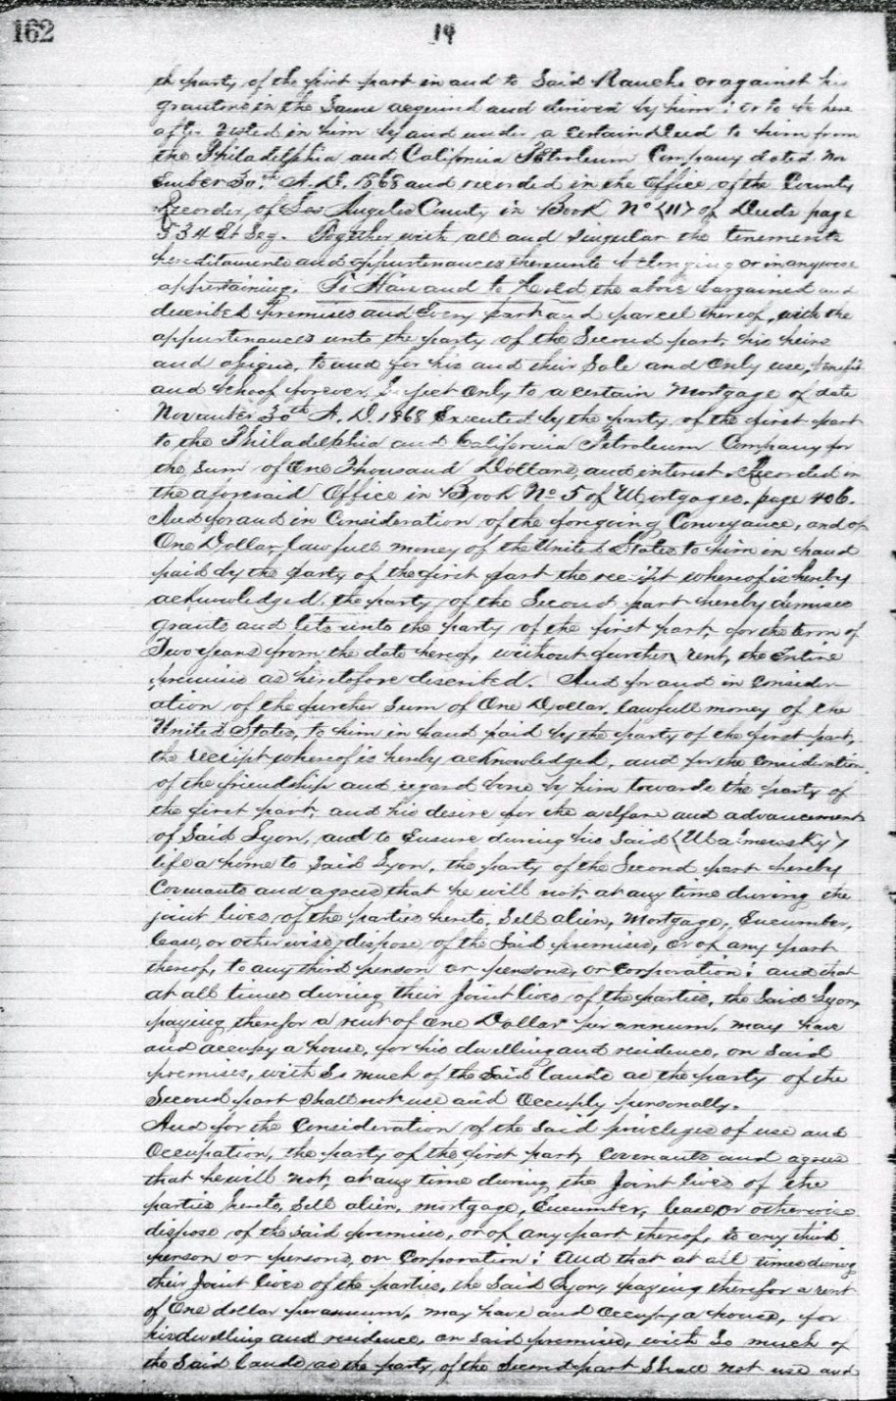 162
14
the party of the first part in and to Said Rancho or against his
grantors in the Same acquired and derived by him; or to be here
after vested in him by and under a certain Deed to him from
the Philadelphia and California Petroleum Company dated Nov
ember 30th A.D. 1868 and recorded in the office of the County
Recorder, of Los Angeles County in Book No <11> of Deeds page
534 et Seq. Together with all and singular the tenements
hereditaments and appurtenances thereunto belonging or in anywise
appertaining. To Have and to Hold the above bargained and
described premises and Every part and parcel thereof, with the
appurtenances unto the party of the Second part, his heirs
and assigns, to and for his and their Sole and only use, benefit
and behoof forever, Subject only to a certain Mortgage of date
November 30th A.D. 1868 Executed by the party of the first part
to the Philadelphia and California Petroleum Company for
the sum of One Thousand Dollars, and interest. Recorded in
the aforesaid Office in Book No 5 of Mortgages. page 406.
And for and in Consideration of the foregoing Conveyance, and of
One Dollar, lawfull money of the United States to him in hand
paid by the party of the first part the receipt whereof is hereby
acknowledged, the party of the Second part hereby demises
grants and lets unto the party of the first part, for the term of
Two years from the date hereof, without further rent, the Entire
premises as heretofore described. And for and in Consider
ation of the further Sum of One Dollar, lawfull money of the
United States, to him in hand paid by the party of the first part,
the receipt whereof is hereby acknowledged, and for the Consideration
of the friendship and regard bore by him towards the party of
the first part, and his desire for the welfare and advancement
of Said Lyon, and to Ensure during his Said
life a home to Said Lyon, the party of the Second part hereby
Covenants and agrees that he will not, at any time during the
joint lives of the parties hereto, Sell alien, Mortgage, Encumber,
lease, or otherwise dispose of the Said premises, or of any part
thereof, to any third person or persons, or Corporation; and that
at all times during their Joint lives of the parties, the Said Lyon,
paying therefor a rent of One Dollar per annum, may have
and occupy a house, for his dwelling and residence, on Said
premises, with So much of the Said lands as the party of the
Second part Shall not use and Occupy personally.
And for the Consideration of the Said privileges of use and
Occupation, the party of the first part, Covenants and agrees
that he will not, at any time during the Joint lives of the
parties hereto, Sell alien, mortgage, Encumber, lease, or otherwise
dispose of the Said premises, or of any part thereof, to any third
person or persons, or Corporation; And that at all times during
their Joint lives of the parties, the Said Lyon, paying therefor a rent
of One dollar per annum, may have and Occupy a house, for
his dwelling and residence, on Said premises, with So much of
the Said lands as the party of the Second part Shall not use and